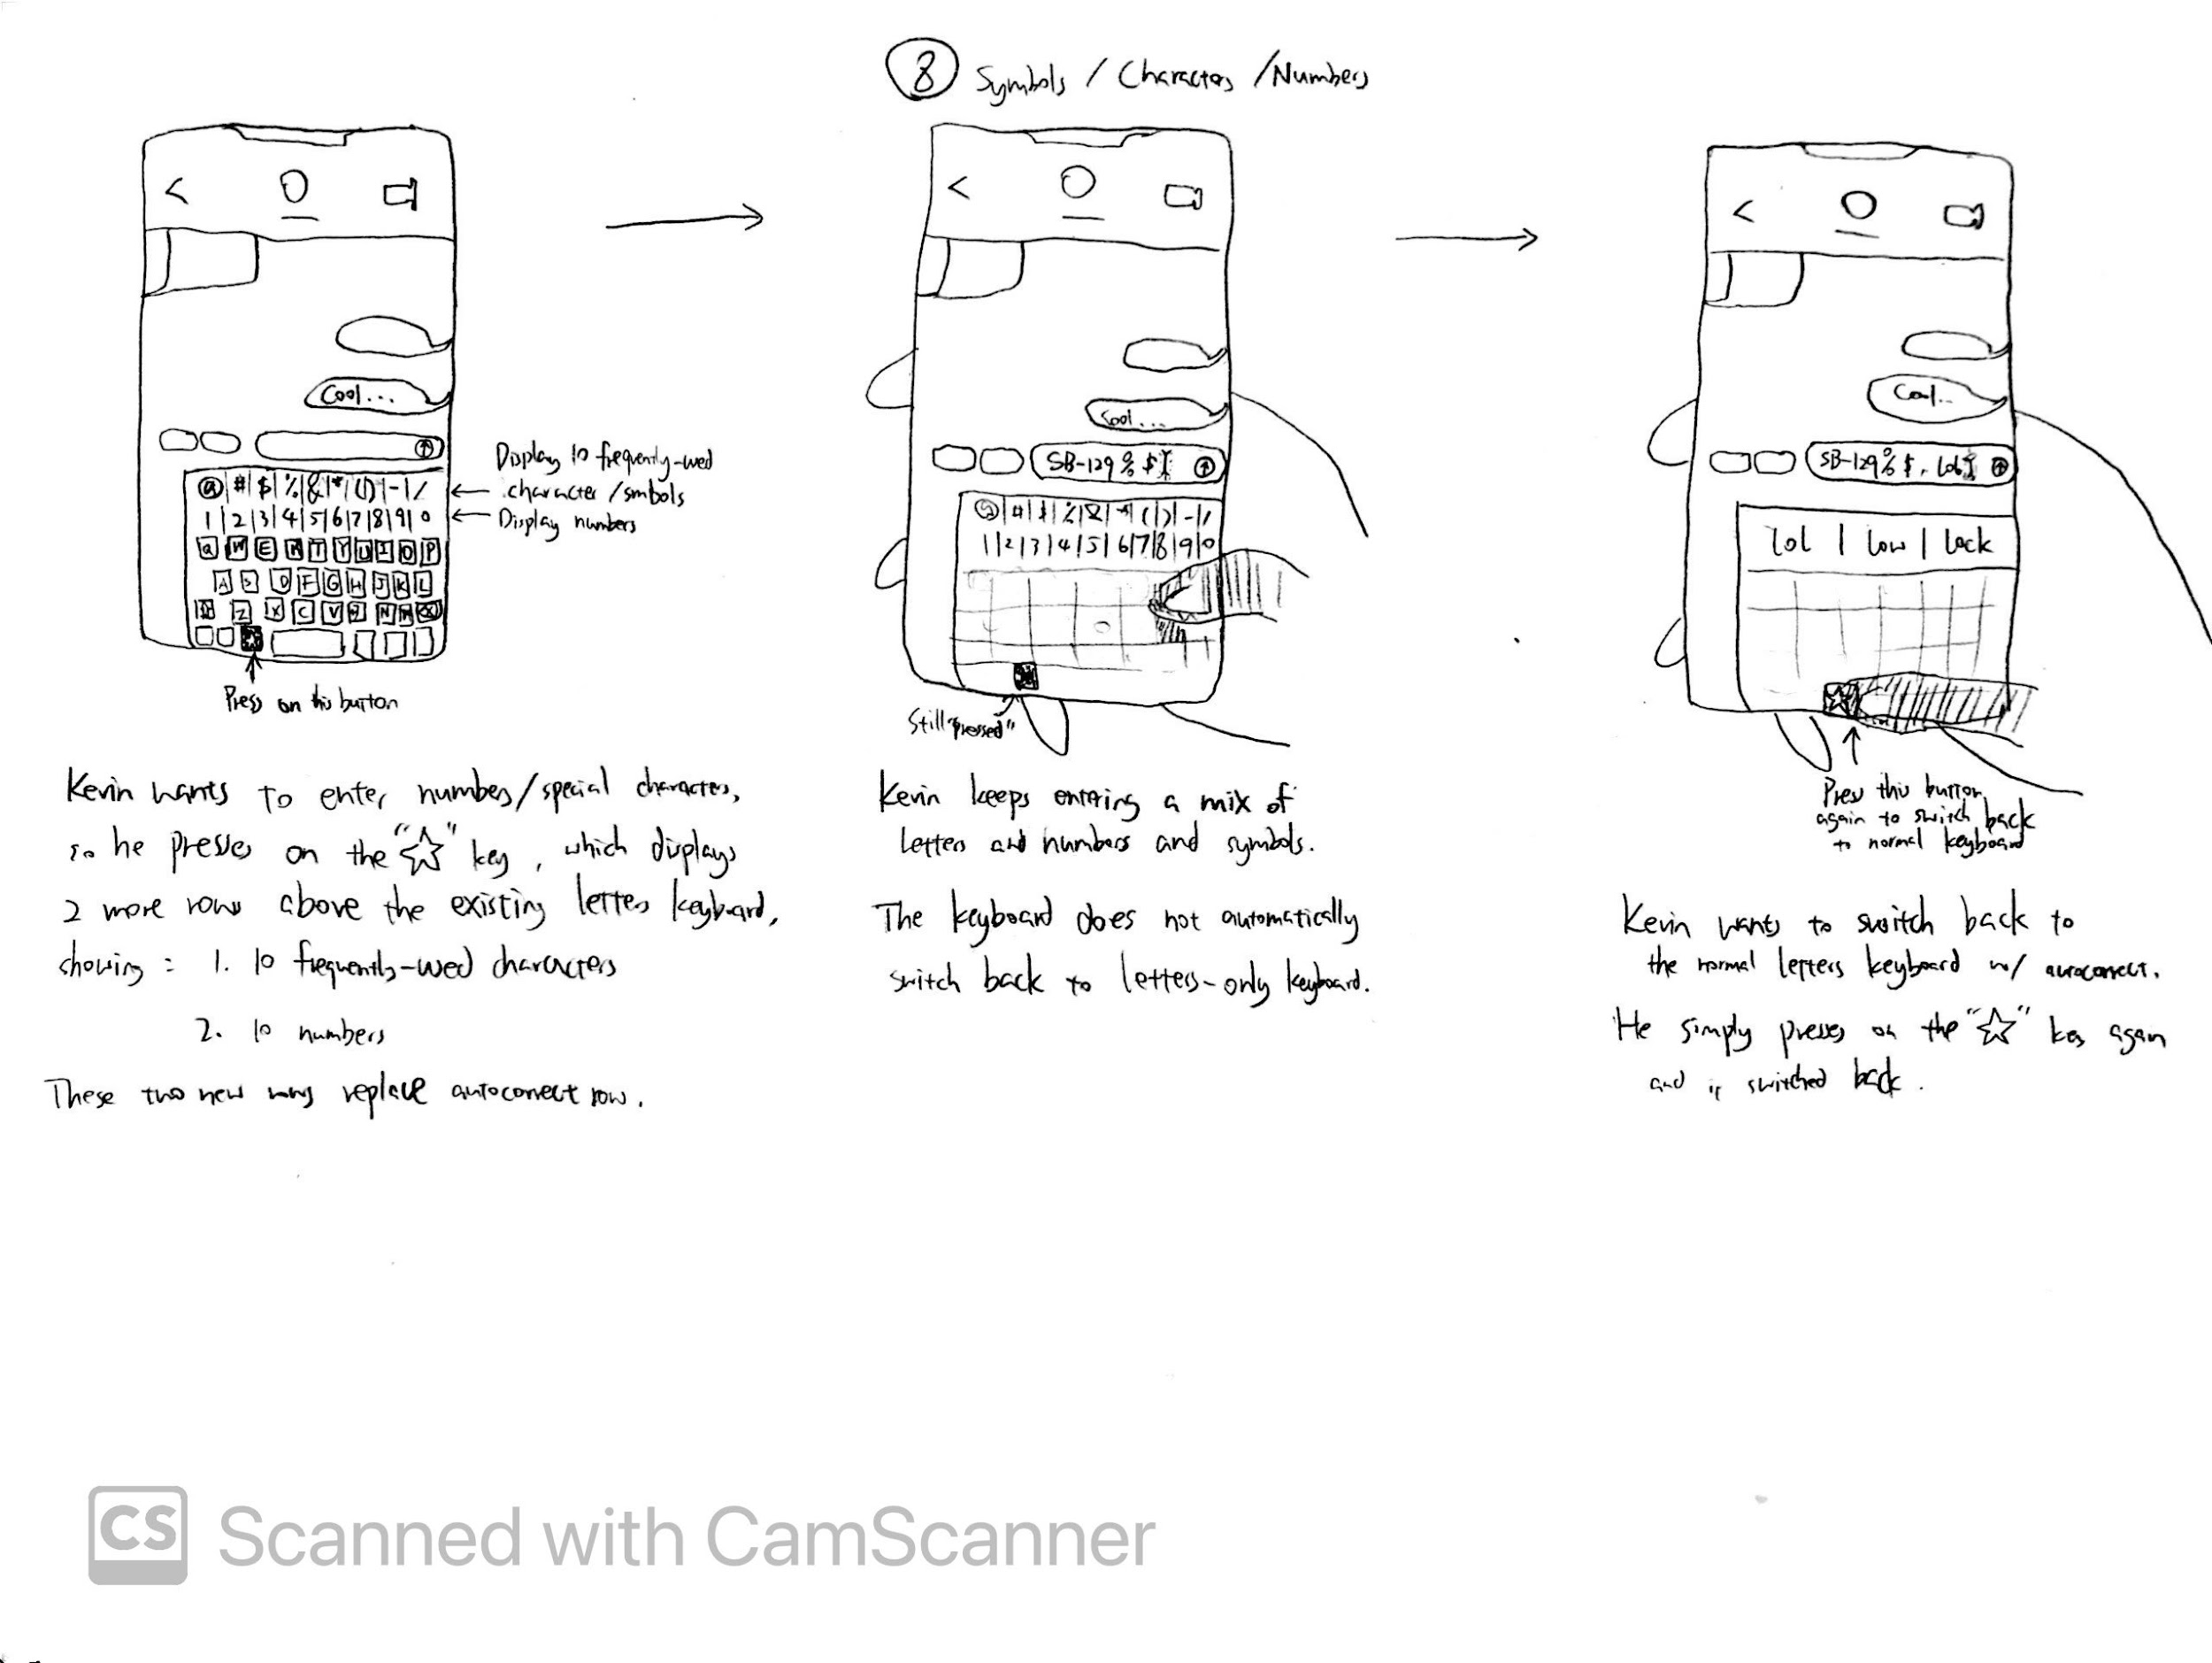 8 Symbols / Characters / Numbers
<
Cool...
@ | # | $ | % | & | * | ( | ) | - | /
1 | 2 | 3 | 4 | 5 | 6 | 7 | 8 | 9 | 0
Q W E R T Y U I O P
A S D F G H J K L
Z X C V B N M
Display 10 frequently-used
character/smbols
Display numbers
Press on this button
Kevin wants to enter numbers/special characters,
so he presses on the "☆" key, which displays
2 more rows above the existing letters keyboard,
showing : 1. 10 frequently-used characters
2. 10 numbers
These two new rows replace autocorrect row.
<
Cool...
SB-129%$
@ | # | $ | % | & | * | ( | ) | - | /
1 | 2 | 3 | 4 | 5 | 6 | 7 | 8 | 9 | 0
Still "pressed"
Kevin keeps entering a mix of
letters and numbers and symbols.
The keyboard does not automatically
switch back to letters-only keyboard.
<
Cool..
SB-129%$. Lol
lol | low | lock
Press this button
again to switch back
to normal keyboard
Kevin wants to switch back to
the normal letters keyboard w/ autocorrect.
He simply presses on the "☆" key again
and is switched back.
CS Scanned with CamScanner